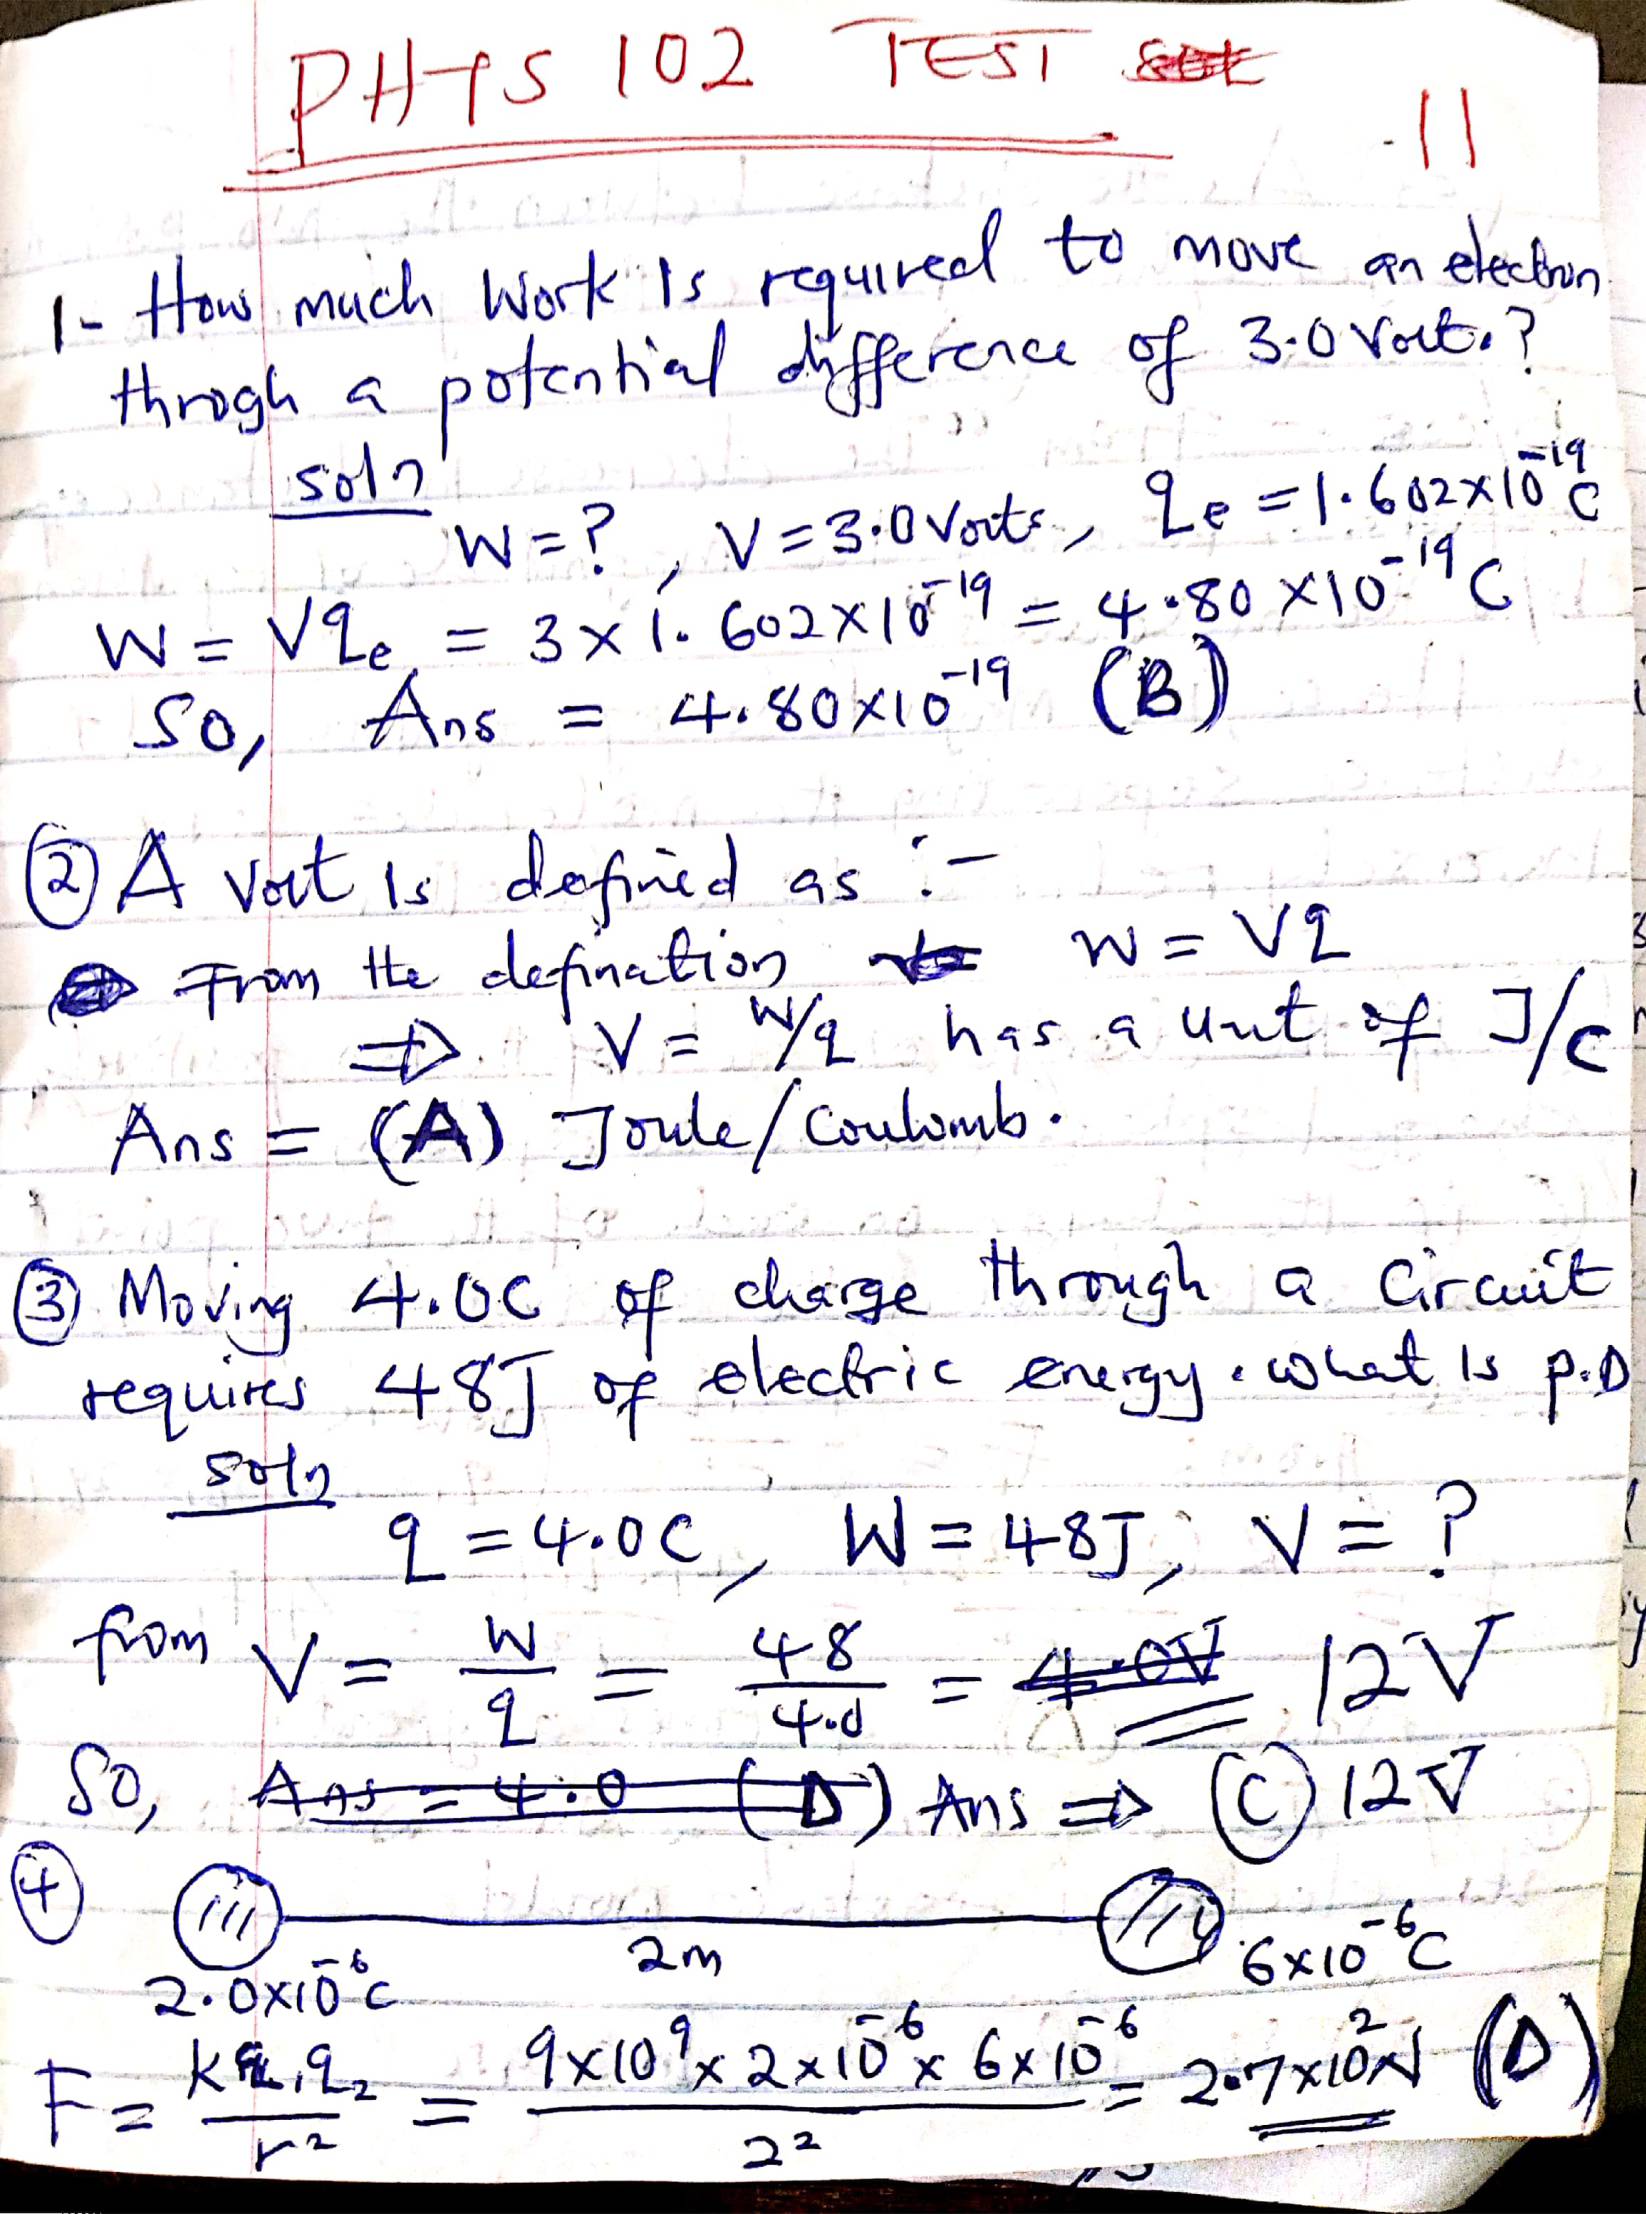 PHYS 102 TEST
11
1- How much Work Is required to move an electron
throgh a potential difference of 3.0 Volt.?
soln
W = ?, V = 3.0 Volts, qe = 1.602x10^-19 C
W = Vqe = 3 x 1.602x10^-19 = 4.80 x10^-19 C
So, Ans = 4.80x10^-19 (B)
② A Volt Is defined as :-
From the defination W = Vq
⇒ V = W/q has a unit of J/C
Ans = (A) Joule/Coulomb.
③ Moving 4.0C of charge through a Circuit
requires 48J of electric energy. what Is p.D
soln
q = 4.0C, W = 48J, V = ?
from V = W/q = 48/4.0 = 4.0V 12V
So, Ans = 4.0 (D) Ans ⇒ (C) 12V
④
2m
2.0x10^-6 C
6x10^-6 C
F = Kq1q2/r^2 = 9x10^9 x 2x10^-6 x 6x10^-6/2^2 = 2.7x10^2 N (D)